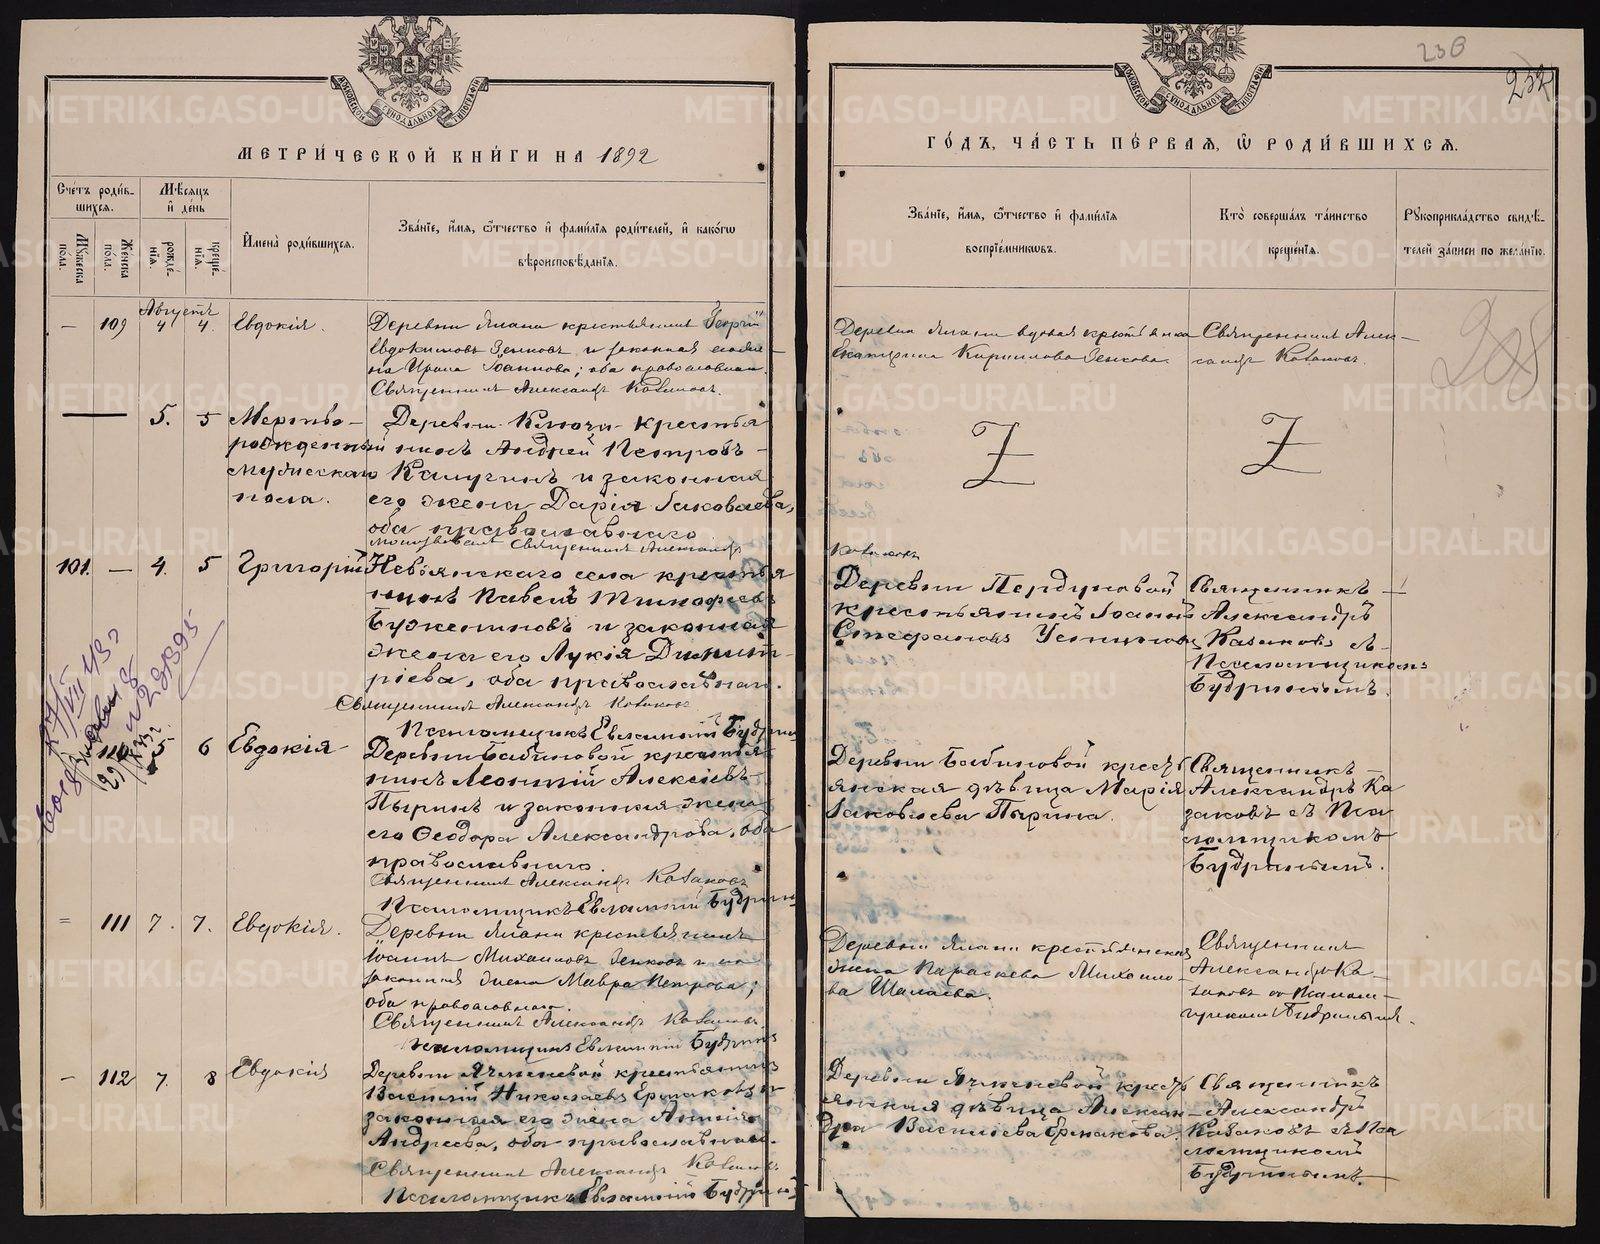 МОСКОВСКОЙ СѴНОДАЛЬНОЙ ТИПОГРАФІИ
МЕТРИ́ЧЕСКОЙ КНИ́ГИ НА 1892
Сче́тъ роди́в-
шихся.
Мѣ́сяцъ
и҆ де́нь
Мꙋ́жеска
пола.
Же́нска
пола.
рожде́-
нїѧ.
креще́-
нїѧ.
И҆мена̀ роди́вшихся.
Зва́нїе, и҆́мѧ, ѻ҆́тчество и҆ фами́лїѧ роди́телей, и҆ како́гѡ
вѣроисповѣ́данїѧ.
Августъ
— 109 4 4. Евдокія.
Деревни Ялани крестьянинъ Георгій
Евдокимовъ Зенковъ и законная жена
Ирина Іоаннова; оба православнаго.
Священникъ Александръ Казаковъ.
— 5. 5 Мертво-
рожденный
мужескаго
пола.
Деревни Ключи крестья
нинъ Андрей Петровъ
Калугинъ и законная
его жена Дарія Іаковлева,
оба православнаго
Священникъ Александръ
101. — 4. 5 Григорій
Невьянскаго села крестья
нинъ Павелъ Тимофеевъ
Бужениновъ и законная
жена его Лукія Димит-
ріева, оба православнаго.
Священникъ Александръ Казаковъ
Псаломщикъ Евлампій Будринъ
110 5. 6 Евдокія
Деревни Бабиновой крестья
нинъ Леонтій Алексіевъ
Пыринъ и законная жена
его Ѳеодора Александрова, оба
православнаго.
Священникъ Александръ Казаковъ
Псаломщикъ Евлампій Будринъ
= 111 7. 7. Евдокія.
Деревни Ялани крестьянинъ
Іоаннъ Михаиловъ Зенковъ и
законная жена Мавра Петрова;
оба православнаго.
Священникъ Александръ Казаковъ
Псаломщикъ Евлампій Будринъ
— 112 7. 8 Евдокія
Деревни Ячменевой крестьянинъ
Василій Николаевъ Ермаковъ и
законная его жена Анна
Андреева, оба православнаго.
Священникъ Александръ Казаковъ
Псаломщикъ Евлампій Будринъ
236
232
МОСКОВСКОЙ СѴНОДАЛЬНОЙ ТИПОГРАФІИ
ГО́ДЪ, ЧА́СТЬ ПЕ́РВАЯ, Ѡ҆ РОДИ́ВШИХСЯ.
Зва́нїе, и҆́мѧ, ѻ҆́тчество и҆ фами́лїѧ
воспрїе́мникѡвъ.
Кто̀ соверша́лъ та́инство
креще́нїѧ.
Рꙋкоприкла́дство свидѣ́-
телей за́писи по жела́нїю.
Деревни Ялани вдовая крестьянка
Екатерина Кириллова Зенкова.
Священникъ Алек-
сандръ Казаковъ.
Z
Z
Казаковъ
Деревни Пердуновой
крестьянинъ Іоаннъ
Стефановъ Устиновъ
Священникъ
Александръ
Казаковъ съ
Псаломщикомъ
Будринымъ.
Деревни Бабиновой кресть
янская дѣвица Марія
Іаковлева Пырина.
Священникъ
Александръ Ка
заковъ съ Пса
ломщикомъ
Будринымъ.
Деревни Ялани крестьянская
жена Параскева Михаило-
ва Шалаева.
Священникъ
Александръ Ка-
заковъ съ Псалом-
щикомъ Будринымъ.
Деревни Ячменевой кресть
янская дѣвица Алексан-
дра Васильева Ермакова.
Священникъ
Александръ
Казаковъ съ Пса
ломщикомъ
Будринымъ.
METRIKI.GASO-URAL.RU